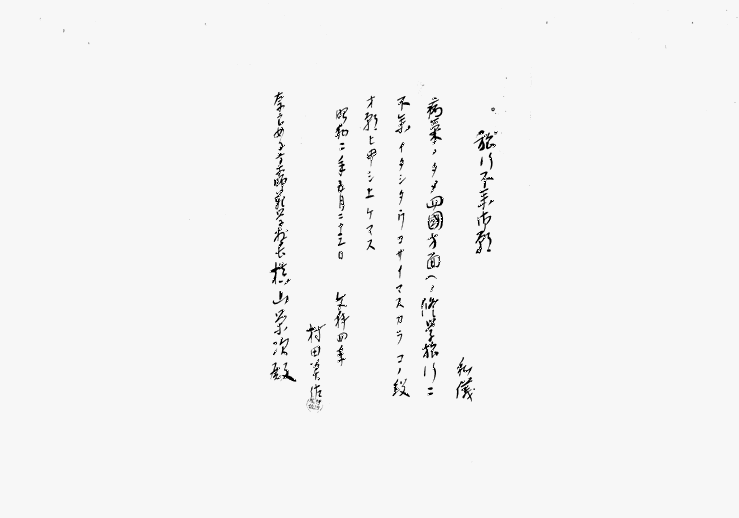 旅行不参御願
私儀
病気ノタメ四國方面ヘノ修学旅行ニ
不参イタシタウゴザイマスカラコノ段
オ願ヒ申シ上ケマス
昭和二年五月二十三日 文科四年
村田
奈良女子高等師範学校長 槙山栄次殿